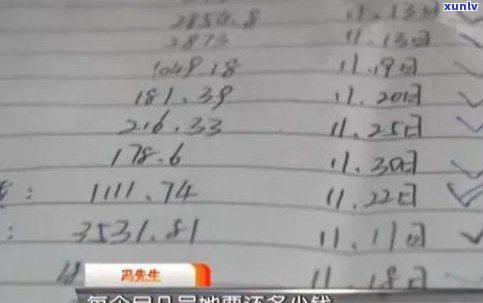 xunlv
2854.8 11.13日
2873 11.13日
1049.18 11.19日
181.39 11.20日
216.33 11.25日
178.6 11.30日
: 1111.74 11.22日
: 3531.81 11.11日
11.18日
冯先生
每个月几号她要还多少钱